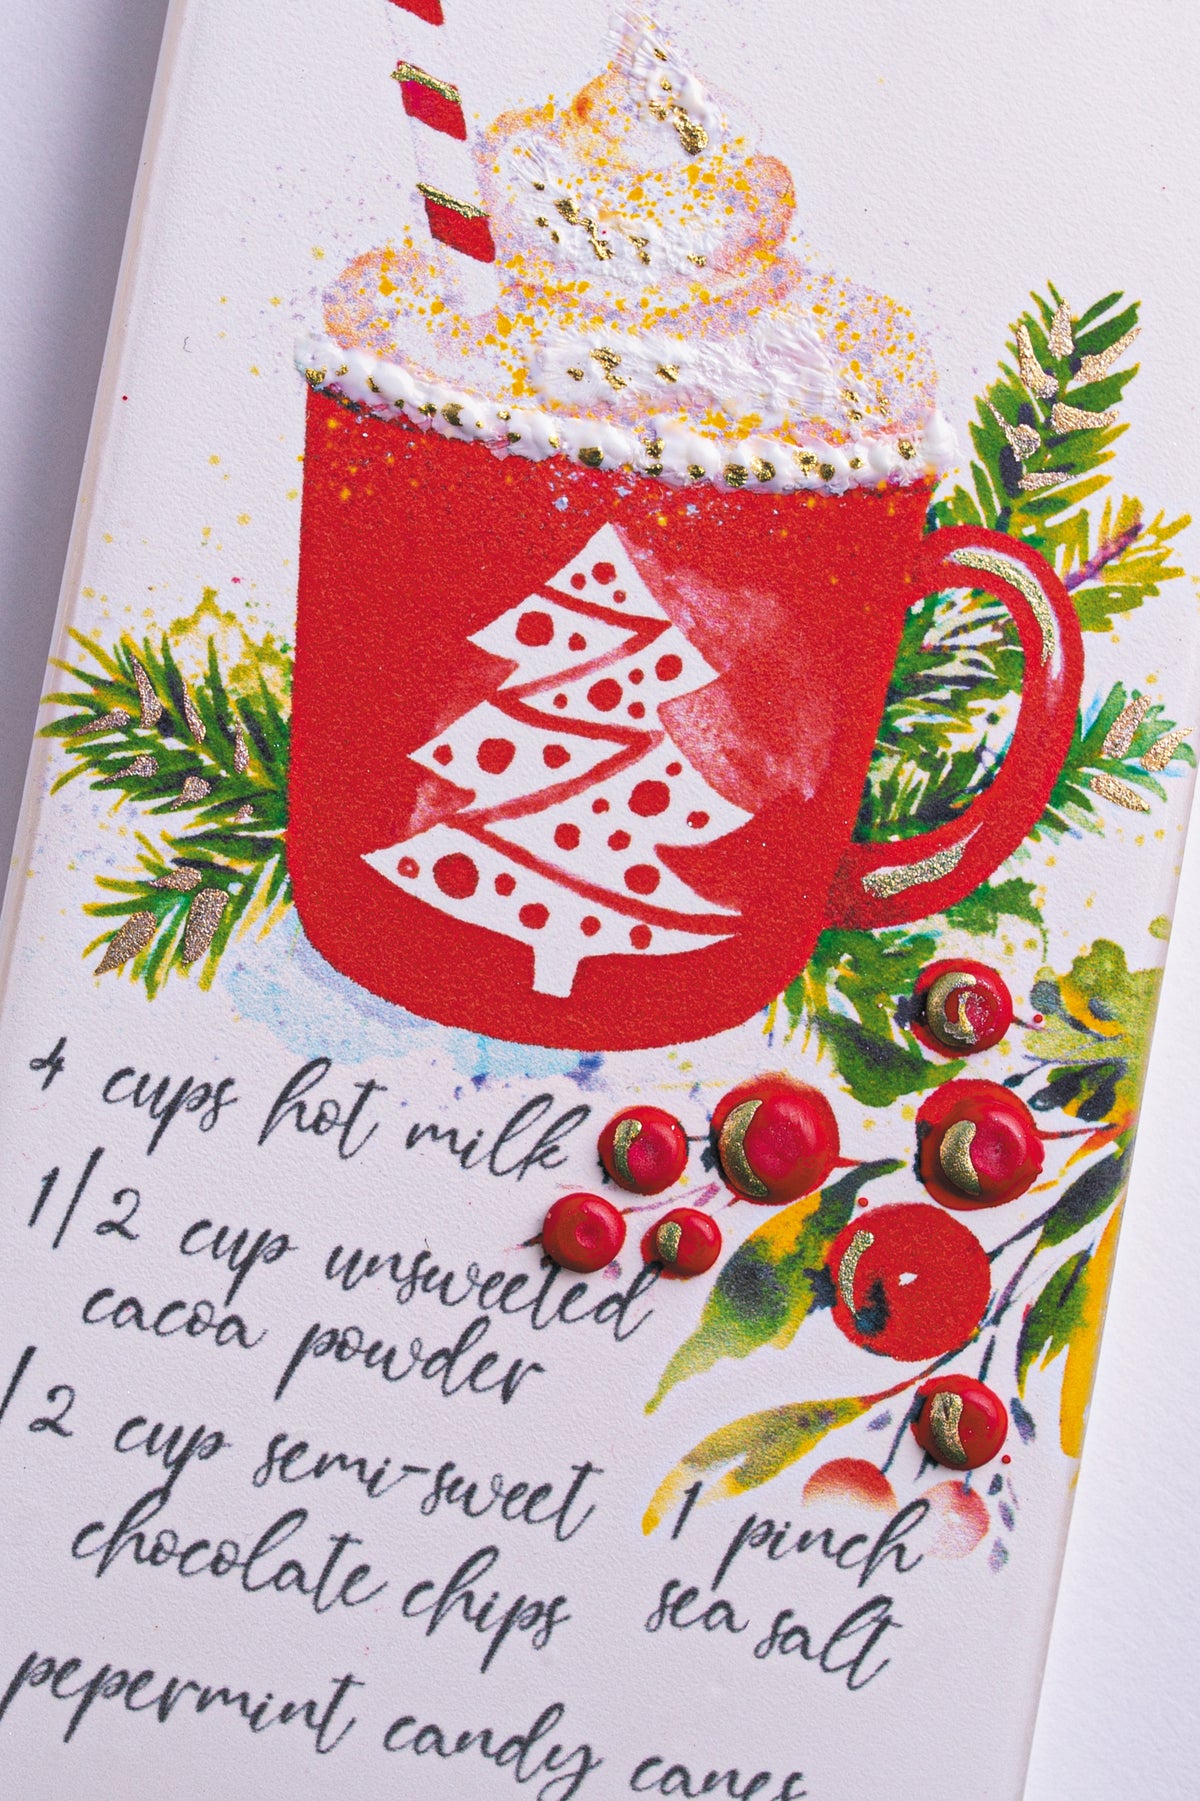 4 cups hot milk
1/2 cup unsweeted
cacoa powder
/2 cup semi-sweet
chocolate chips
1 pinch
sea salt
pepermint candy canes